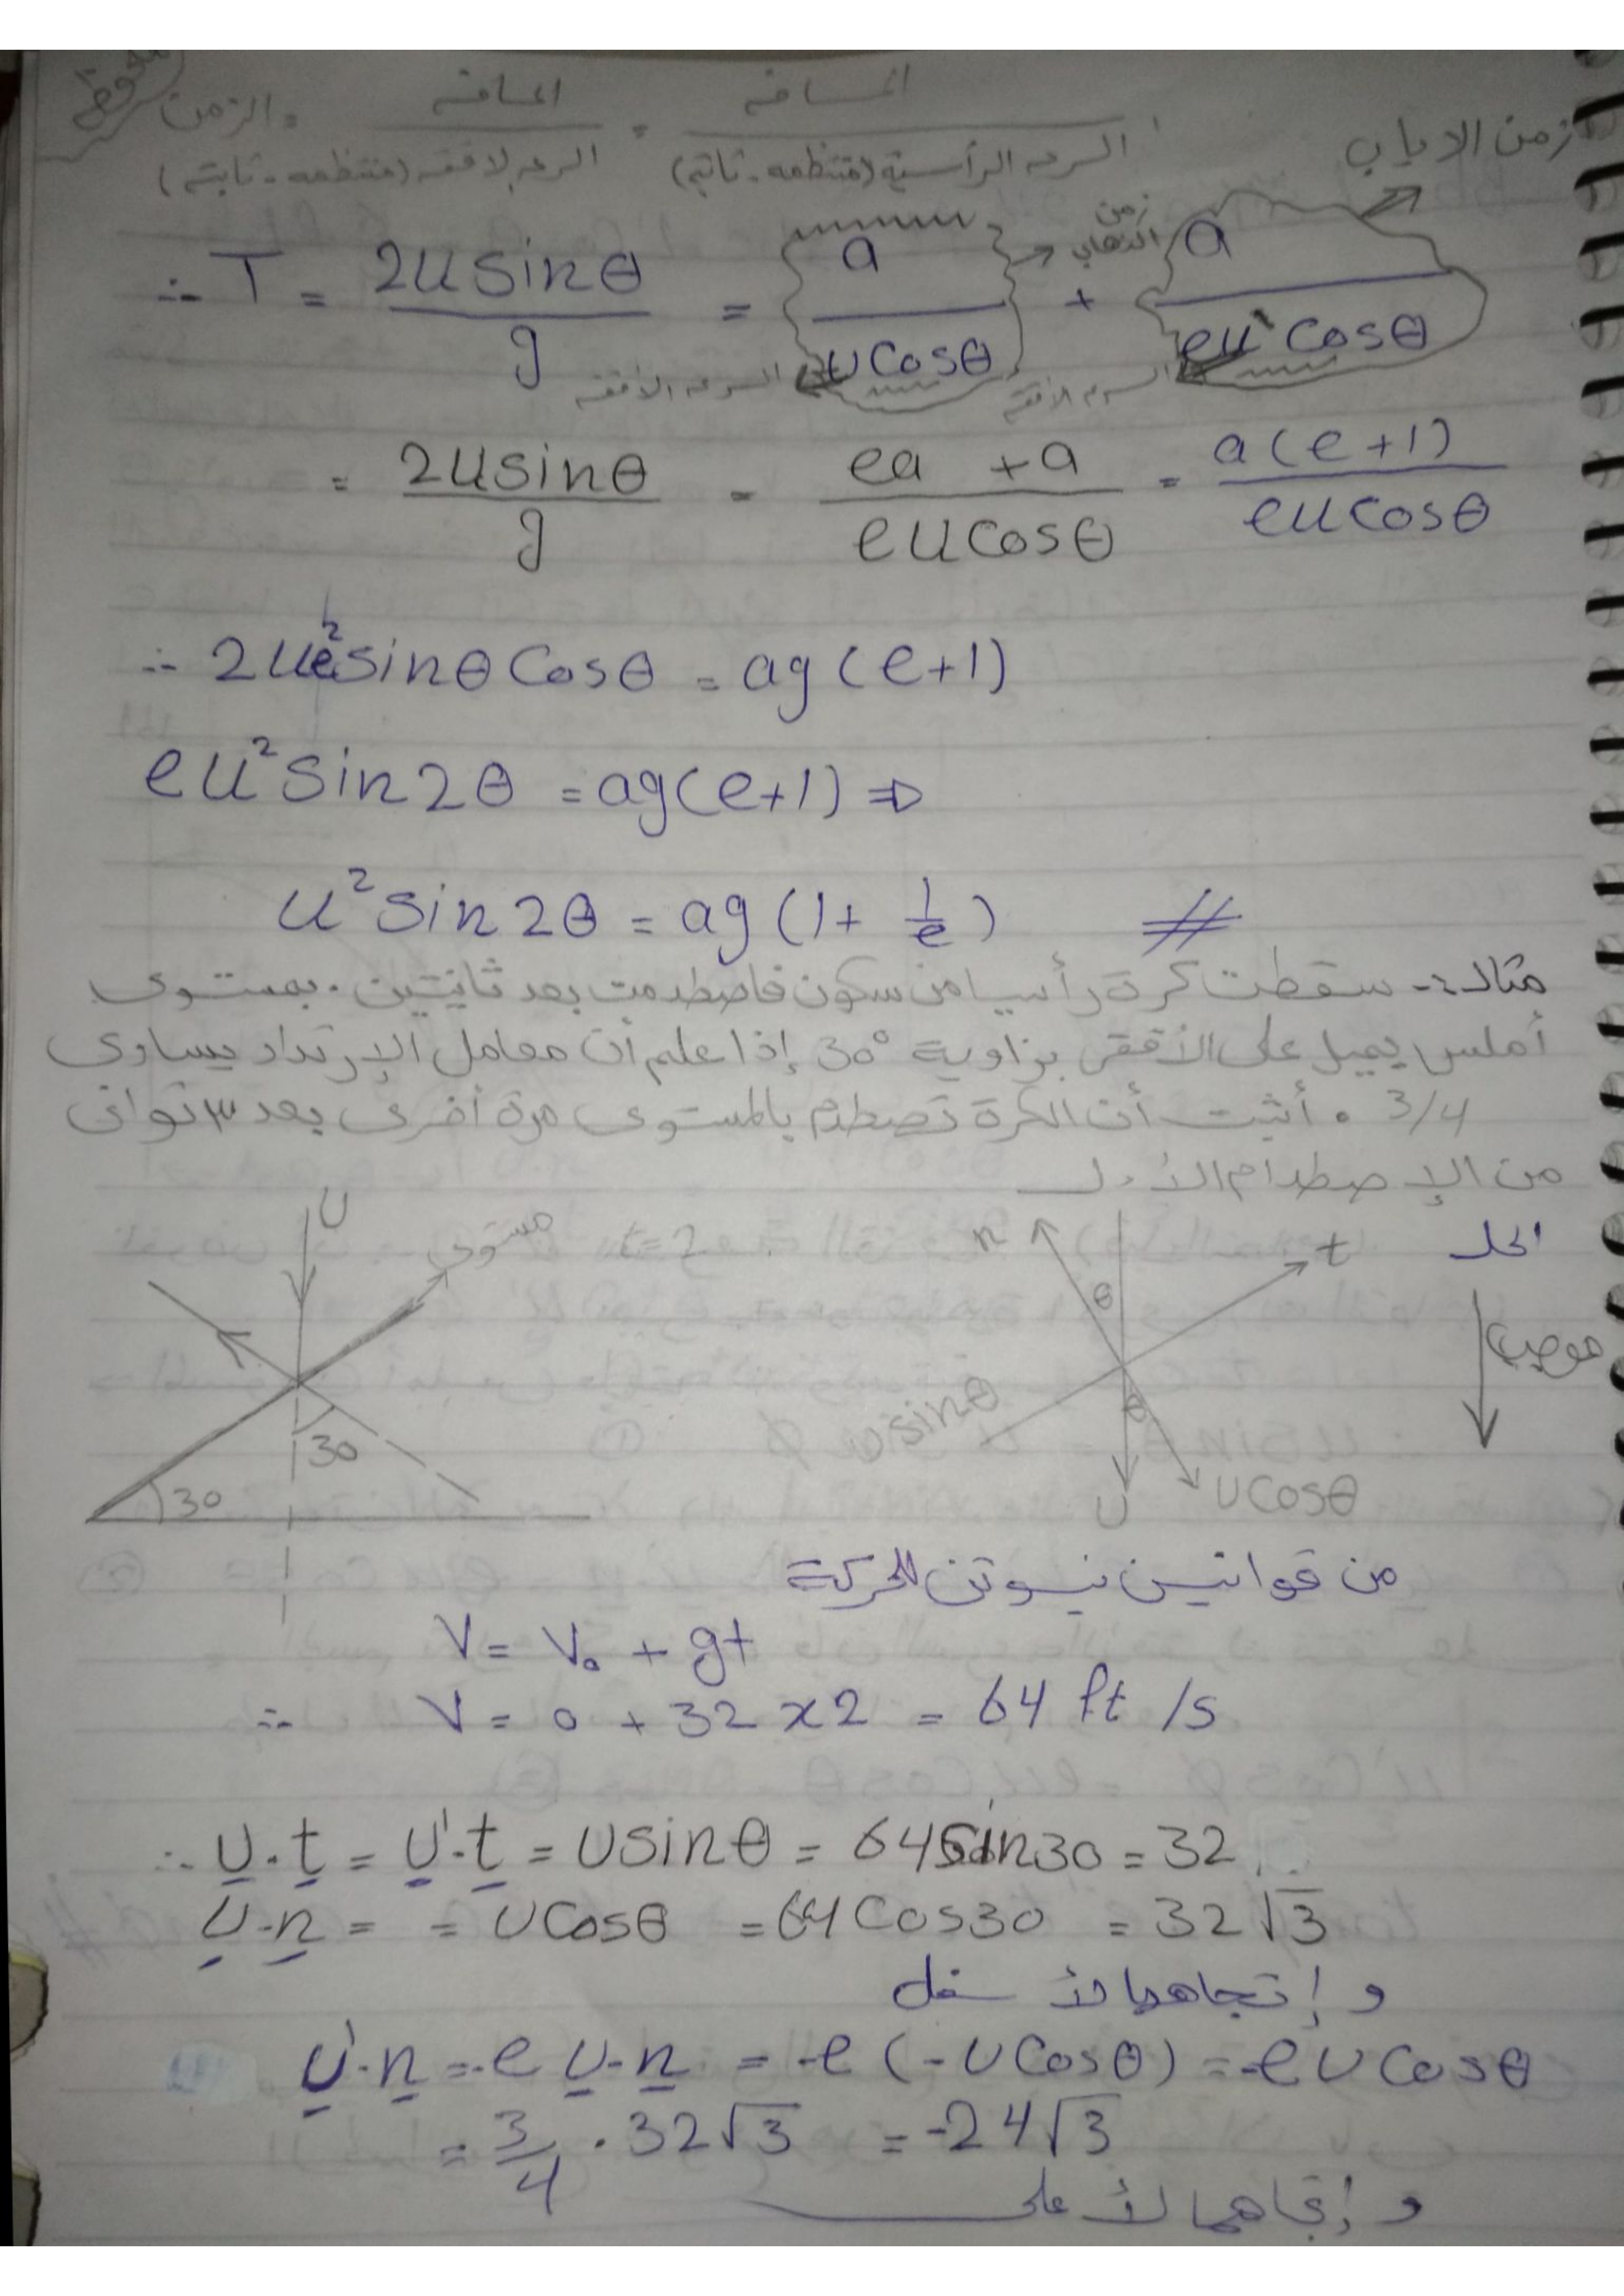 زمن الاياب = المسافه / السرعه الرأسية (منتظمه - ثابته) = المسافه / السرعه الافقيه (منتظمه - ثابته) = الزمن
∴ T = 2u sinθ / g = a / u cosθ + a / eu cosθ
زمن الذهاب
السرعه الافقيه
السرعه الافقيه
= 2u sinθ / g = ea + a / eu cosθ = a(e+1) / eu cosθ
∴ 2u²e sinθ cosθ = ag(e+1)
eu² sin2θ = ag(e+1) ⇒
u² sin2θ = ag(1 + 1/e) #
مثال :- سقطت كرة رأسيا من سكون فاصطدمت بعد ثانيتين . بمستوى
أملس يميل على الأفقى بزاوية 30° إذا علم أن معامل الإرتداد يساوى
3/4 . أثبت أن الكرة تصطدم بالمستوى مرة أخرى بعد ٣ ثوانى
من الإصطدام الأول
الحل
U مستوى t=2 n θ t
30 30
U sinθ θ U U cosθ
موجب
من قوانين نيوتن للحركة
V = V₀ + gt
∴ V = 0 + 32 x 2 = 64 ft /s
∴ U·t = U'·t = U sinθ = 64 sin30 = 32
U·n = = U cosθ = 64 Cos30 = 32√3
و إتجاهها لأسفل
U'·n = -e U·n = -e (-U Cosθ) = -e U Cosθ
= 3/4 . 32√3 = -24√3
و إتجاهها لأعلى